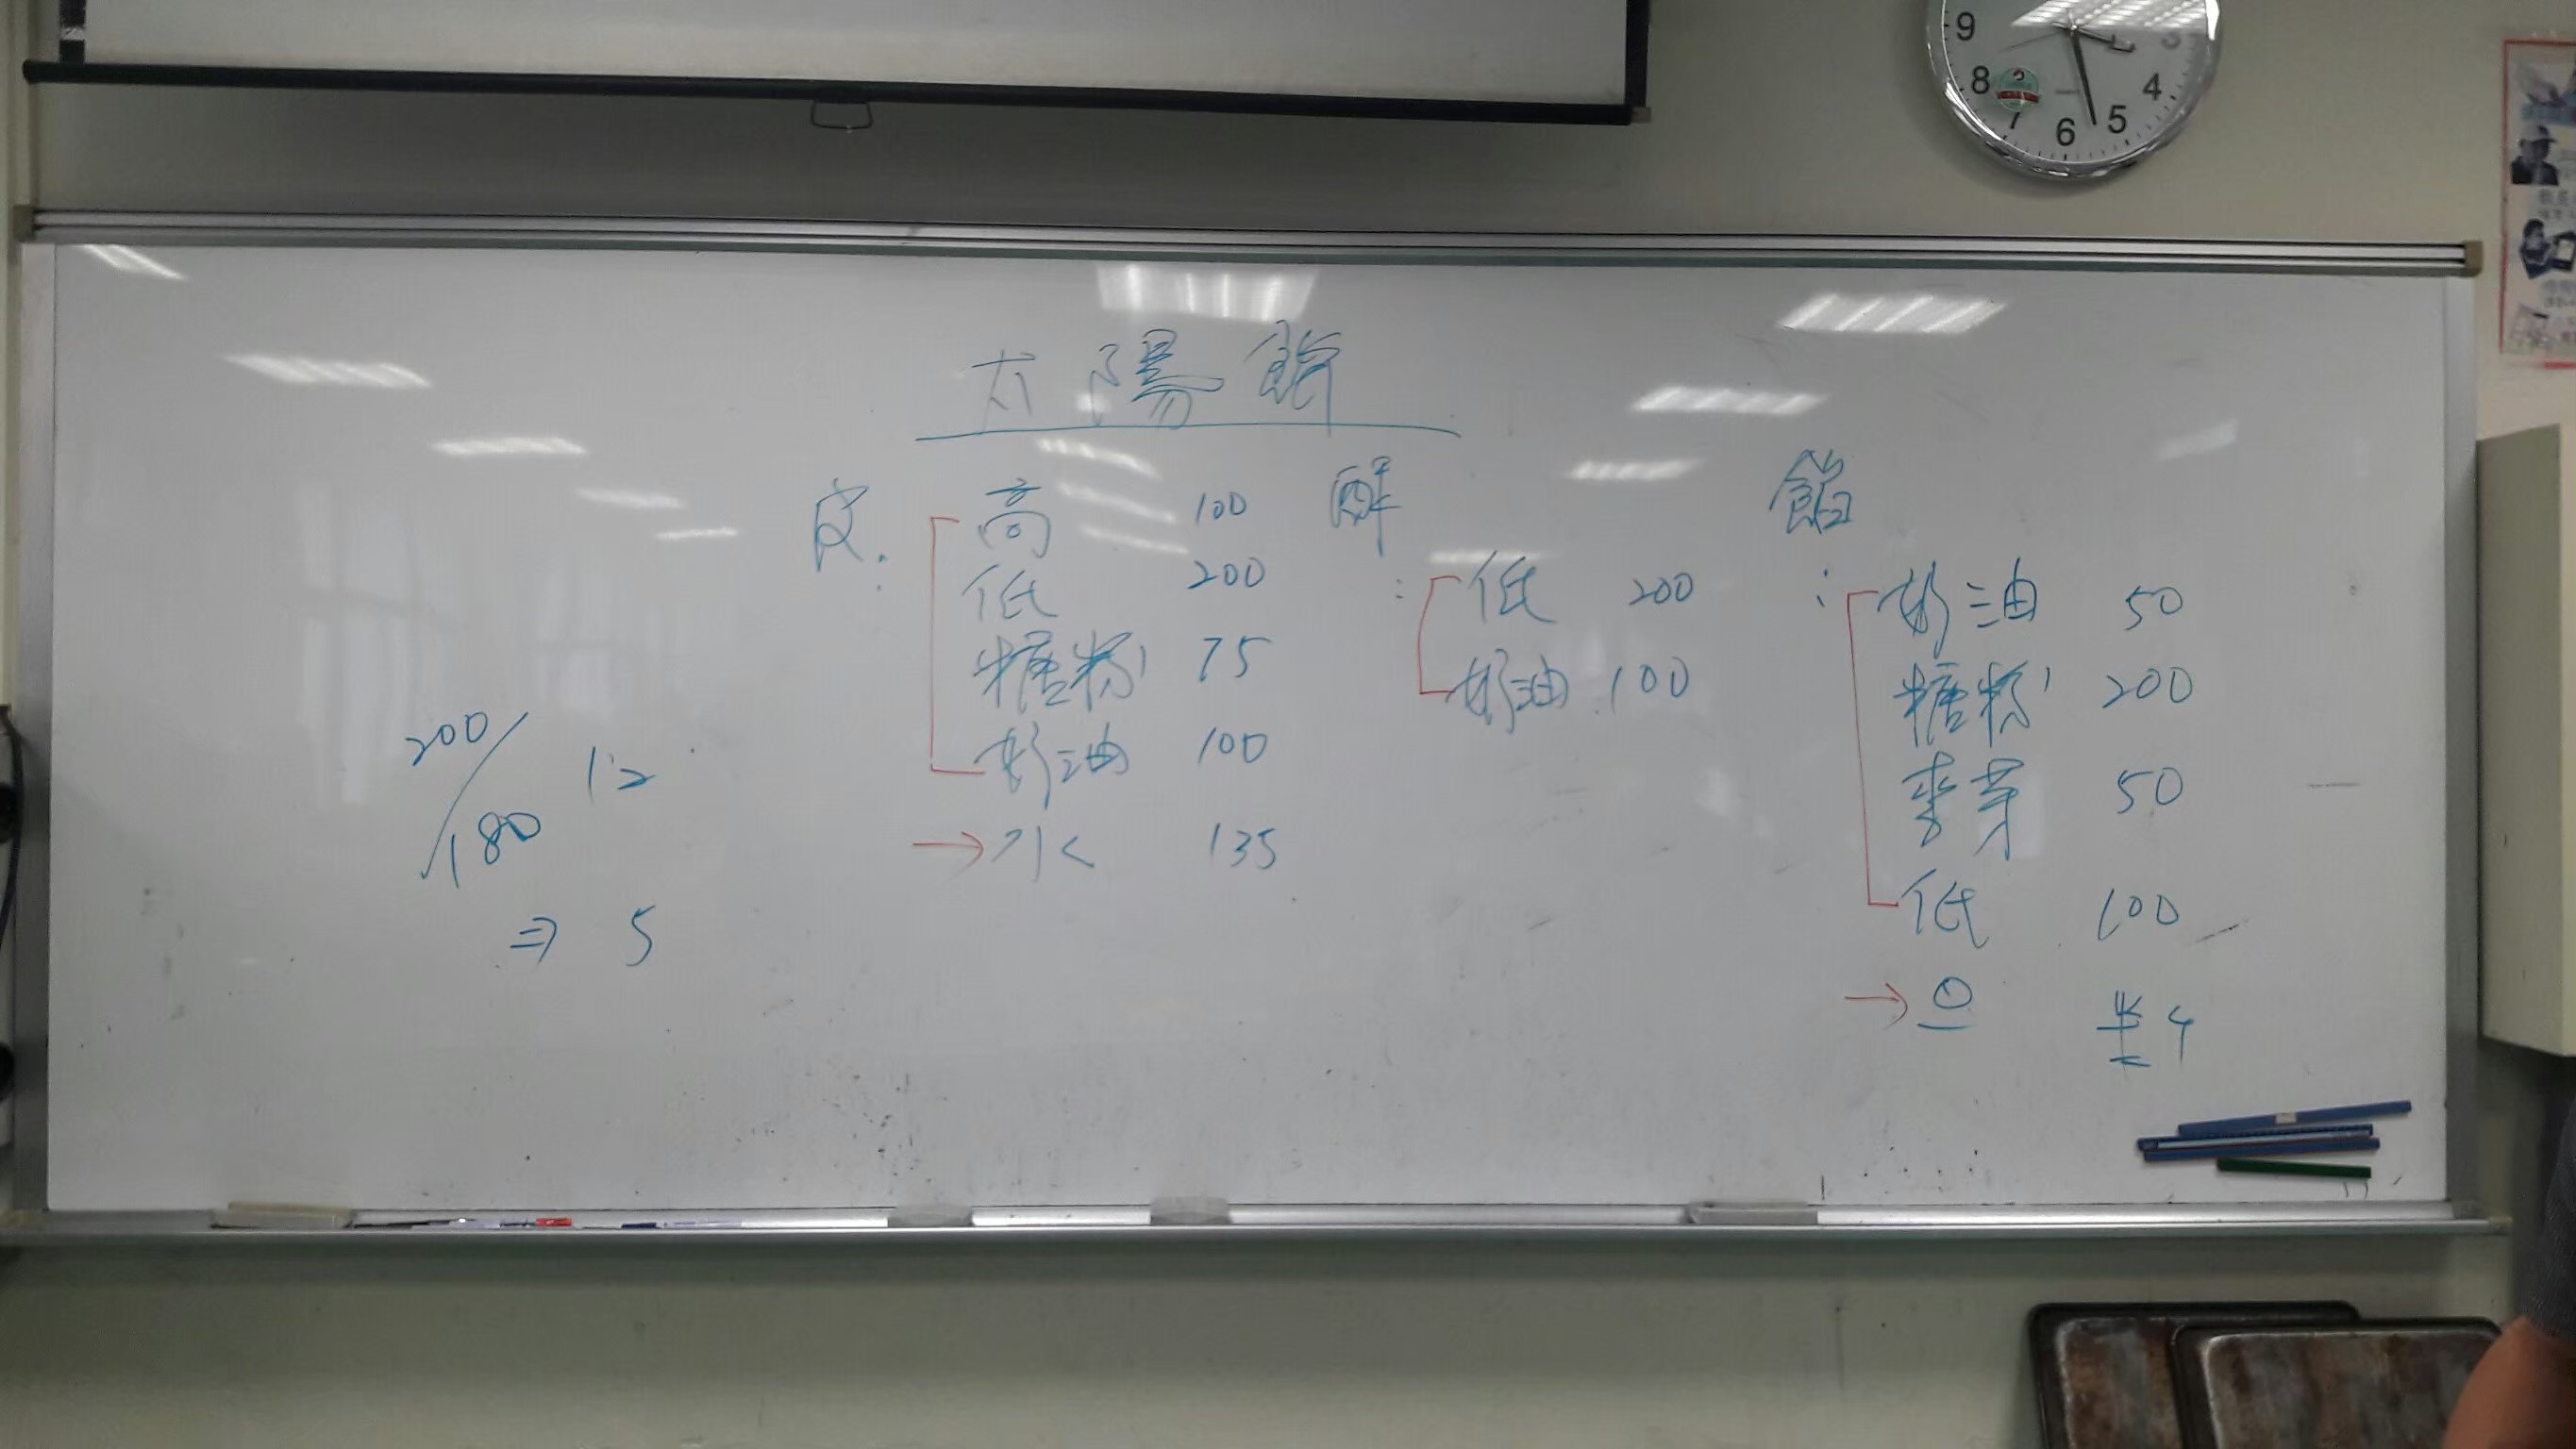 太陽餅
皮:
高 100
低 200
糖粉 75
奶油 100
→水 135
酥:
低 200
奶油 100
餡:
奶油 50
糖粉 200
麥芽 50
低 100
→
200/180 12
⇒ 5
9
8
7
6
5
4
3